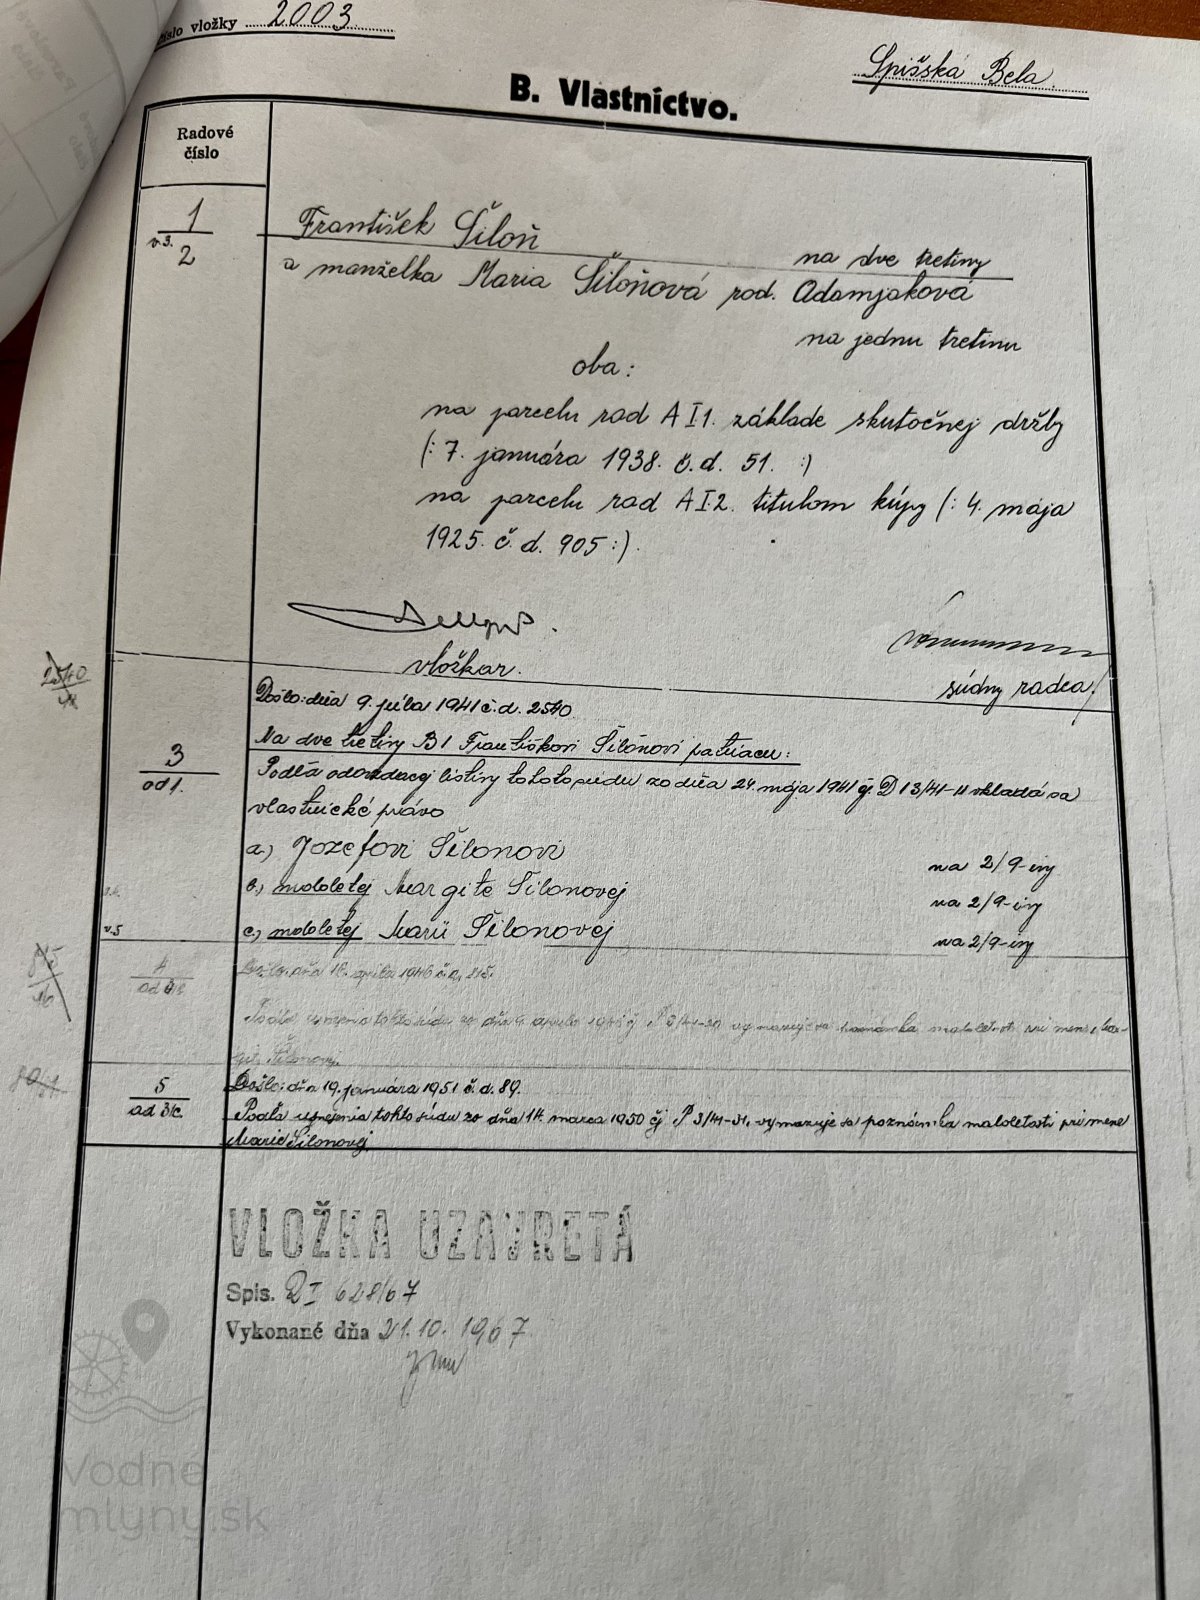 číslo vložky 2003
Spišská Bela
B. Vlastníctvo.
Radové
číslo
1
v 3.
2
František Šiloň
na dve tretiny
a manželka Maria Šiloňová rod. Adamjaková
na jednu tretinu
oba:
na parcelu rad A I 1. základe skutočnej držby
(: 7. januára 1938. č. d. 51. :)
na parcelu rad A I 2. titulom kúpy (: 4. mája
1925. č. d. 905 :).
vložkár.
súdny radca
2540
41
Došlo: dňa 9. júla 1941 č. d. 2540
3
od 1.
Na dve tretiny B 1 Františkovi Šiloňovi patriacu:
Podľa odovzdacej listiny tohoto súdu zo dňa 24. mája 1941 čj. D 13/41-11 vkladá sa
vlastnícké právo
a.) Jozefovi Šilonovi na 2/9-iny
b.) maloletej Margite Šilonovej na 2/9-iny
v. 5
c.) maloletej Marii Šilonovej na 2/9-iny
4
Došlo: dňa 18. apríla 1946 č. d. 215.
Podľa uznesenia tohto súdu zo dňa apríla 1946 čj. P 3/41-20 vymazuje sa poznámka maloletosti pri mene Mar-
gity Šilonovej
5
ad 3/c.
Došlo: dňa 19. januára 1951 č. d. 89.
Podľa uznesenia tohto súdu zo dňa 14. marca 1950 čj. P 3/41-31, vymazuje sa poznámka maloletosti pri mene
Marie Šilonovej
VLOŽKA UZAVRETÁ
Spis. RI 628/67
Vykonané dňa 21.10. 1967
Vodne
mlyny.sk